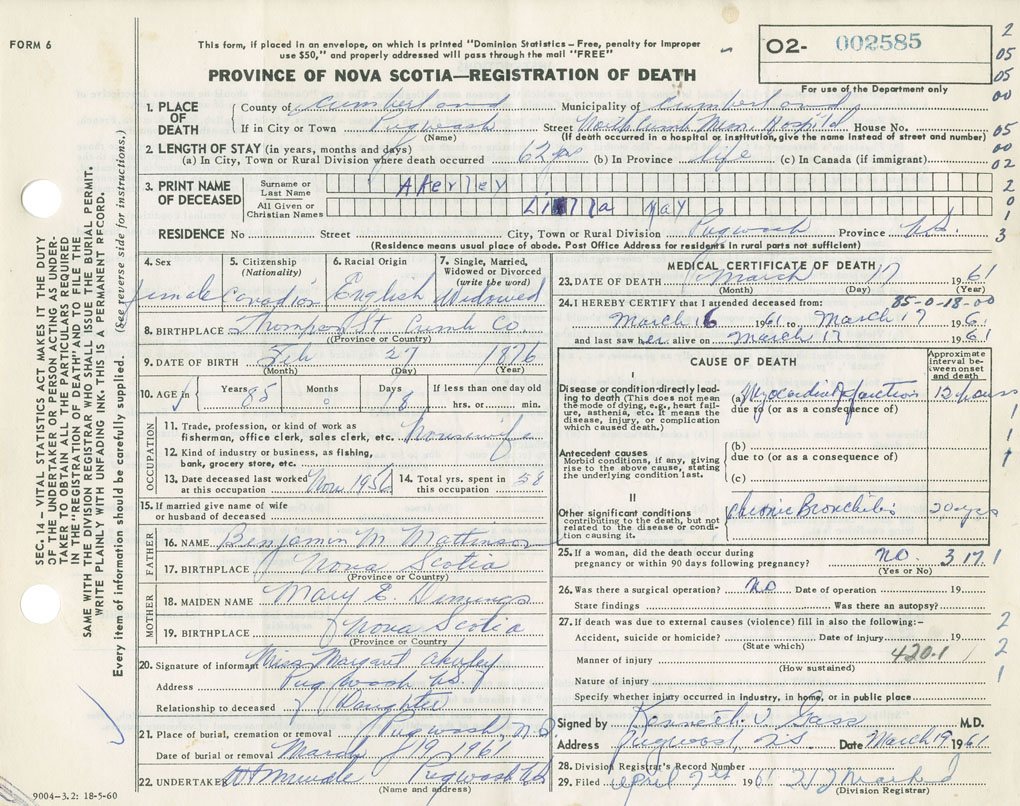 FORM 6
This form, if placed in an envelope, on which is printed "Dominion Statistics – Free, penalty for improper
use $50," and properly addressed will pass through the mail "FREE"
O2- 002585
PROVINCE OF NOVA SCOTIA—REGISTRATION OF DEATH
For use of the Department only
2
05
05
00
05
00
02
2
0
1
3
SEC. 14 – VITAL STATISTICS ACT MAKES IT THE DUTY
OF THE UNDERTAKER OR PERSON ACTING AS UNDER-
TAKER TO OBTAIN ALL THE PARTICULARS REQUIRED
IN THE "REGISTRATION OF DEATH" AND TO FILE THE
SAME WITH THE DIVISION REGISTRAR WHO SHALL ISSUE THE BURIAL PERMIT.
WRITE PLAINLY WITH UNFADING INK. THIS IS A PERMANENT RECORD.
Every item of information should be carefully supplied. (See reverse side for instructions.)
1. PLACE OF DEATH
County of Cumberland Municipality of Cumberland
If in City or Town Pugwash Street North Cumb Mem. Hospital House No.
(Name) (If death in a hospital or institution, give the name instead of street and number)
2. LENGTH OF STAY (in years, months and days)
(a) In City, Town or Rural Division where death occurred 62 yrs (b) In Province life (c) In Canada (if immigrant)
3. PRINT NAME OF DECEASED
Surname or Last Name Akerley
All Given or Christian Names May
RESIDENCE No Street City, Town or Rural Division Pugwash Province N.S.
(Residence means usual place of abode. Post Office Address for residents in rural parts not sufficient)
4. Sex female
5. Citizenship (Nationality) Canadian
6. Racial Origin English
7. Single, Married, Widowed or Divorced (write the word) Widowed
8. BIRTHPLACE Thompson St Cumb Co.
(Province or Country)
9. DATE OF BIRTH Feb 27 1876
(Month) (Day) (Year)
10. AGE in Years 85 Months 0 Days 18 If less than one day old hrs. or min.
OCCUPATION
11. Trade, profession, or kind of work as
fisherman, office clerk, sales clerk, etc. housewife
12. Kind of industry or business, as fishing,
bank, grocery store, etc.
13. Date deceased last worked at this occupation Nov. 1956
14. Total yrs. spent in this occupation 58
15. If married give name of wife
or husband of deceased
FATHER
16. NAME Benjamin M Mattinson
17. BIRTHPLACE Nova Scotia
(Province or Country)
MOTHER
18. MAIDEN NAME Mary E. Demings
19. BIRTHPLACE Nova Scotia
(Province or Country)
20. Signature of informant Miss Margaret Akerley
Address Pugwash N.S.
Relationship to deceased Daughter
21. Place of burial, cremation or removal Pugwash, N.S.
Date of burial or removal March 19, 1961
22. UNDERTAKER Pugwash NS
(Name and address)
9004–3.2: 18-5-60
MEDICAL CERTIFICATE OF DEATH
23. DATE OF DEATH March 17 1961
(Month) (Day) (Year)
24. I HEREBY CERTIFY that I attended deceased from: 85-0-18-00
March 16 1961 to March 17 1961
and last saw her alive on March 17 1961
CAUSE OF DEATH
Approximate interval between onset and death
I
Disease or condition directly lead-
ing to death (This does not mean
the mode of dying, e.g., heart fail-
ure, asthenia, etc. It means the
disease, injury, or complication
which caused death.)
(a) Myocardial Infarction 12 hours
due to (or as a consequence of)
Antecedent causes
Morbid conditions, if any, giving
rise to the above cause, stating
the underlying condition last.
(b)
due to (or as a consequence of)
(c)
1
1
1
II
Other significant conditions
contributing to the death, but not
related to the disease or condi-
tion causing it.
Chronic Bronchitis 20 yrs
25. If a woman, did the death occur during
pregnancy or within 90 days following pregnancy? no. 3171
(Yes or No)
26. Was there a surgical operation? no Date of operation 19
State findings Was there an autopsy?
27. If death was due to external causes (violence) fill in also the following:–
2
Accident, suicide or homicide? Date of injury 19
(State which)
420.1
2
Manner of injury
(How sustained)
Nature of injury
1
Specify whether injury occurred in industry, in home, or in public place
Signed by Kenneth V Gass M.D.
Address Pugwash, N.S. Date March 19 1961
28. Division Registrar's Record Number
29. Filed April 1961
(Division Registrar)